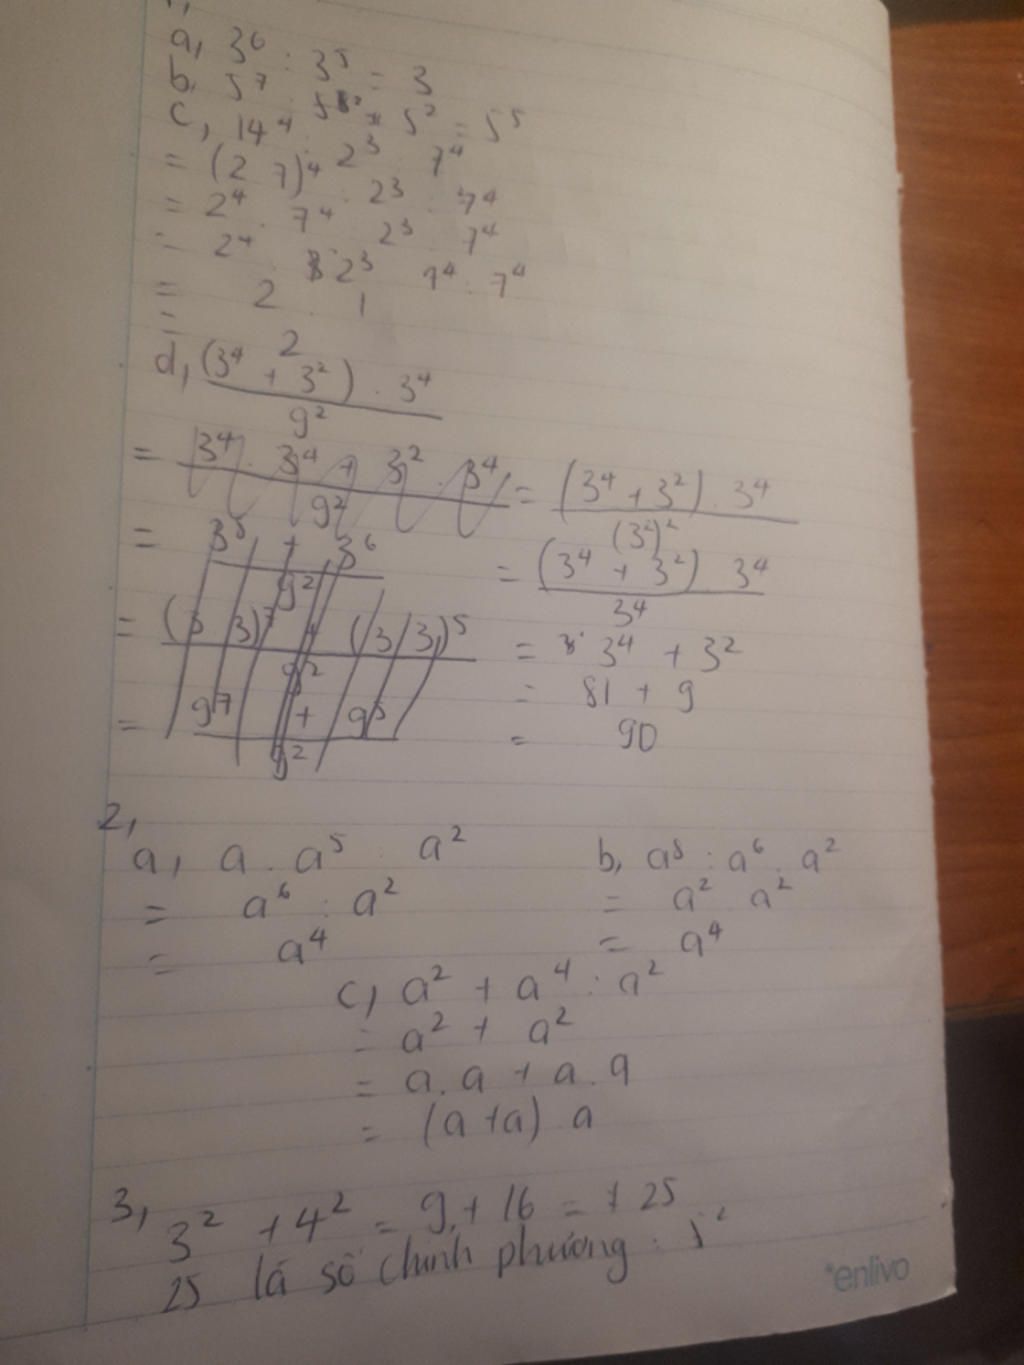 a, 3⁶ : 3⁵ = 3
b, 5⁷ : 5² = 5⁵
c, 14⁴ : 2³ : 7⁴
= (2 7)⁴ : 2³ : 7⁴
= 2⁴ . 7⁴ : 2³ : 7⁴
= 2⁴ : 2³ 7⁴ : 7⁴
= 2 . 1
= 2
d, (3⁴ + 3²) . 3⁴
9²
= 3⁴ . 3⁴ + 3² . 3⁴
9²
= (3⁴ + 3²) . 3⁴
(3²)²
= (3⁴ + 3²) 3⁴
3⁴
= 3⁴ + 3²
= 81 + 9
= 90
2,
a, a . a⁵ : a²
= a⁶ : a²
= a⁴
b, a⁸ : a⁶ . a²
= a² a²
= a⁴
c, a² + a⁴ : a²
= a² + a²
= a.a + a.a
= (a+a) a
3,
3² + 4² = 9 + 16 = 25
25 là số chính phương :
enlivo